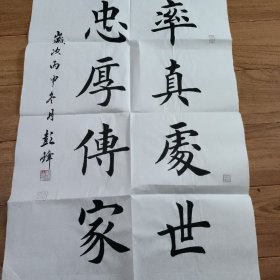 率真處世
忠厚傳家
歲次丙申冬月彭鋒